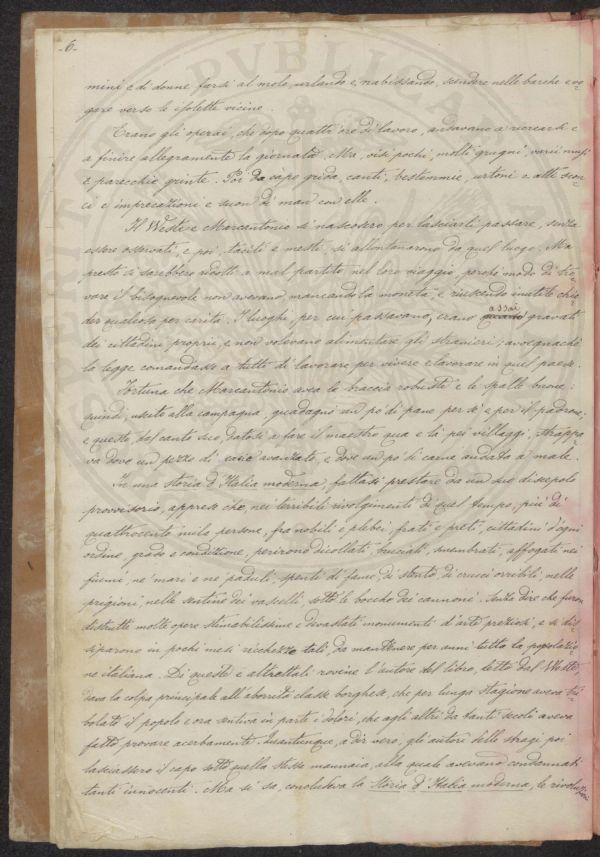 -6-
mini e di donne farsi al molo, urlando e nabissando, scendere nelle barche e vo-
gare verso le isolette vicine.
Erano gli operai, che dopo quattr'ore di lavoro, andavano a ricrearsi e
a finire allegramente la giornata. Ma, visi pochi, molti grugni, varii musi
e parecchie grinte. Poi da capo grida, canti, bestemmie, urtoni e altri scon-
ci e imprecazioni e suon di man con elle.
Il West e Marcantonio si nascosero per lasciarli passare, senza
essere osservati, e poi, taciti e mesti, si allontanarono da quel luogo. Ma
presto si sarebbero ridotti a mal partito nel loro viaggio, perchè modo di tro-
vare il bisognevole non avevano, mancando la moneta, e riuscendo inutile chie-
der qualcosa per carità. I luoghi, per cui passavano, erano assai gravati
dei cittadini proprii, e non volevano alimentare gli stranieri; avvegnachè
la legge comandasse a tutti di lavorare per vivere e lavorare in quel paese.
Fortuna che Marcantonio avea le braccia robuste e le spalle buone:
quindi, uscito alla campagna, guadagnò un po' di pane per sè e per il padrone;
e questo, dal canto suo, datosi a fare il maestro qua e là pei villaggi, strappa-
va dove un pezzo di cacio avanzato, e dove un po' di carne andata a male.
In una Storia d'Italia moderna, fattasi prestare da un suo discepolo
provvisorio, apprese che, nei terribili rivolgimenti di quel tempo, più di
quattrocento mila persone, fra nobili e plebei, frati e preti, cittadini d'ogni
ordine, grado e condizione, perirono dicollati, bruciati, smembrati, affogati nei
fiumi, ne' mari e ne' paduli, spenti di fame, di stento, di crucci orribili, nelle
prigioni, nelle sentine dei vascelli, sotto le bocche dei cannoni. Senza dire che furon
distrutte molte opere stimabilissime e devastati monumenti d'arte preziosi, e si dis-
siparono in pochi mesi ricchezze tali, da mantenere per anni tutta la popolazio-
ne italiana. Di queste e altrettali rovine l'autore del libro, letto dal West,
dava la colpa principale all'aborrita classe borghese, che per lunga stagione aveva tri-
bolato il popolo e ora sentiva in parte i dolori, che agli altri da tanti secoli aveva
fatto provare acerbamente. Quantunque, a dir vero, gli autori delle stragi poi
lasciassero il capo sotto quella stessa mannaia, alla quale avevano condannati
tanti innocenti. Ma si sa, concludeva la Storia d'Italia moderna, le rivoluzioni